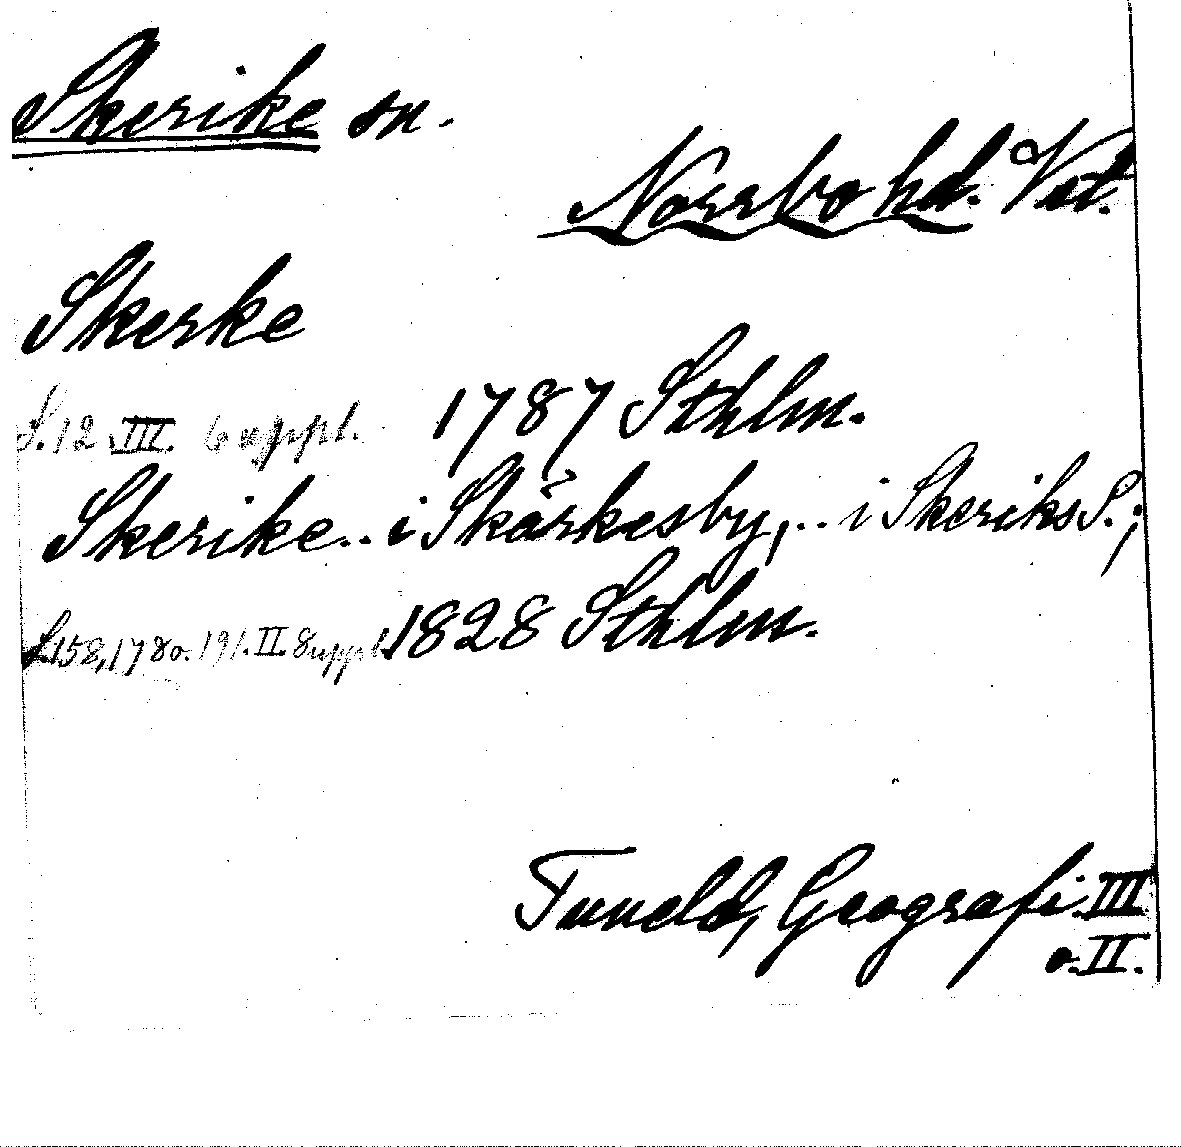 Skerike sn.
Norrbo hd. Vst.
Skerke
S. 12 III. 6 uppl. 1787 Sthlm.
Skerike.. i Skärkesby,.. i Skeriks S.;
S. 158, 178 o. 191. II. 8 uppl. 1828 Sthlm.
Tuneld, Geografi III
o. II.